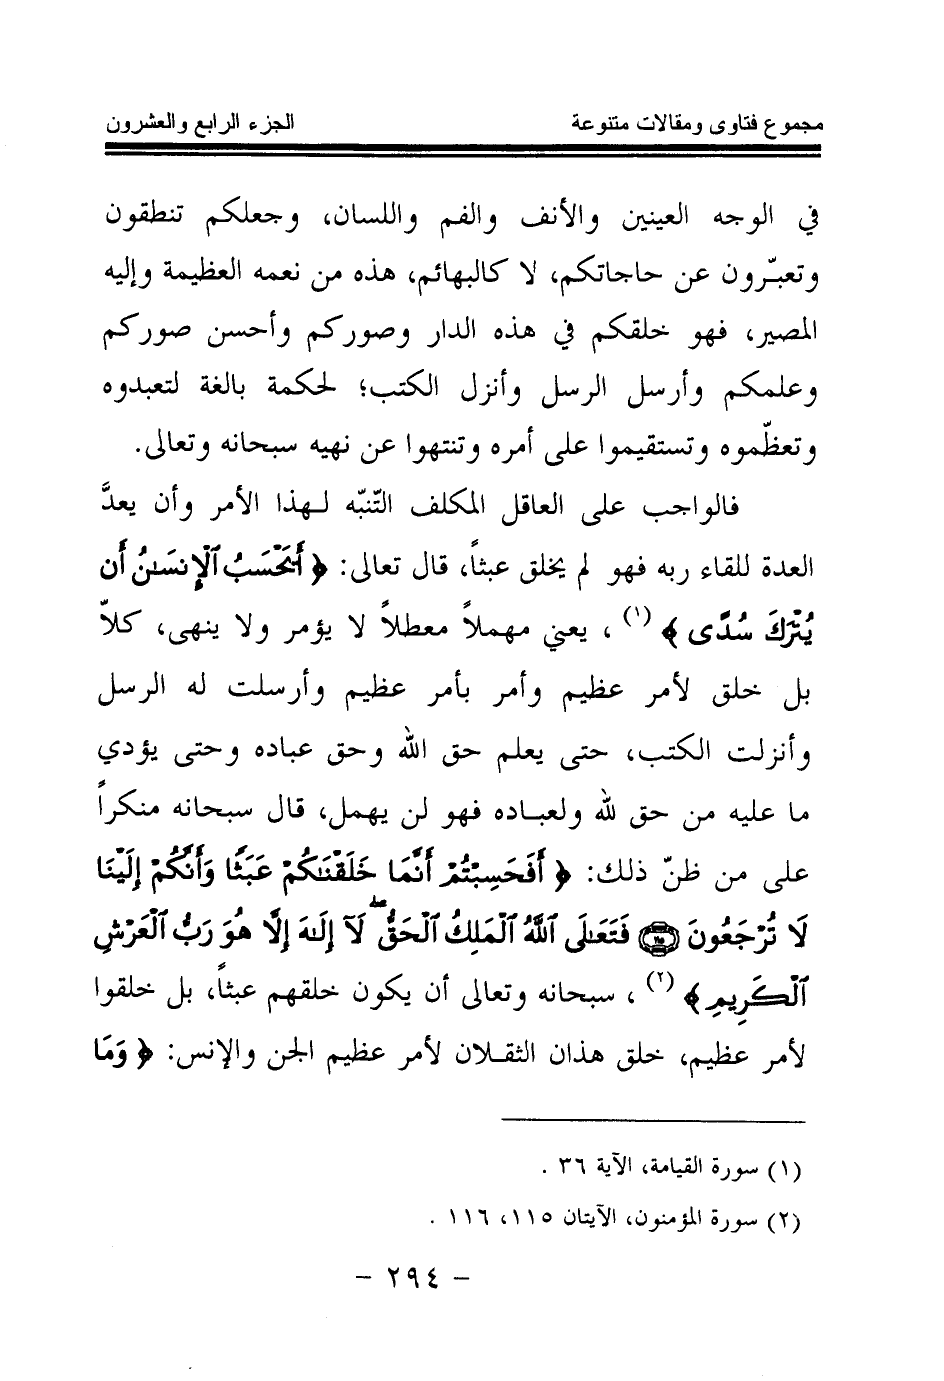 مجموع فتاوى ومقالات متنوعة الجزء الرابع والعشرون
في الوجه العينين والأنف والفم واللسان، وجعلكم تنطقون
وتعبّرون عن حاجاتكم، لا كالبهائم، هذه من نعمه العظيمة وإليه
المصير، فهو خلقكم في هذه الدار وصوركم وأحسن صوركم
وعلمكم وأرسل الرسل وأنزل الكتب؛ لحكمة بالغة لتعبدوه
وتعظّموه وتستقيموا على أمره وتنتهوا عن نهيه سبحانه وتعالى.
فالواجب على العاقل المكلف التّنبّه لهذا الأمر وأن يعدَّ
العدة للقاء ربه فهو لم يخلق عبثاً، قال تعالى: ﴿ أَيَحْسَبُ ٱلْإِنسَٰنُ أَن
يُتْرَكَ سُدًى ﴾ (١) ، يعني مهملاً معطلاً لا يؤمر ولا ينهى، كلاّ
بل خلق لأمر عظيم وأمر بأمر عظيم وأرسلت له الرسل
وأنزلت الكتب، حتى يعلم حق الله وحق عباده وحتى يؤدي
ما عليه من حق لله ولعباده فهو لن يهمل، قال سبحانه منكراً
على من ظنّ ذلك: ﴿ أَفَحَسِبْتُمْ أَنَّمَا خَلَقْنَٰكُمْ عَبَثًا وَأَنَّكُمْ إِلَيْنَا
لَا تُرْجَعُونَ ۝١١٥ فَتَعَٰلَى ٱللَّهُ ٱلْمَلِكُ ٱلْحَقُّ ۖ لَآ إِلَٰهَ إِلَّا هُوَ رَبُّ ٱلْعَرْشِ
ٱلْكَرِيمِ ﴾ (٢) ، سبحانه وتعالى أن يكون خلقهم عبثاً، بل خلقوا
لأمر عظيم، خلق هذان الثقلان لأمر عظيم الجن والإنس: ﴿ وَمَا
(١) سورة القيامة، الآية ٣٦ .
(٢) سورة المؤمنون، الآيتان ١١٥، ١١٦ .
- ٢٩٤ -